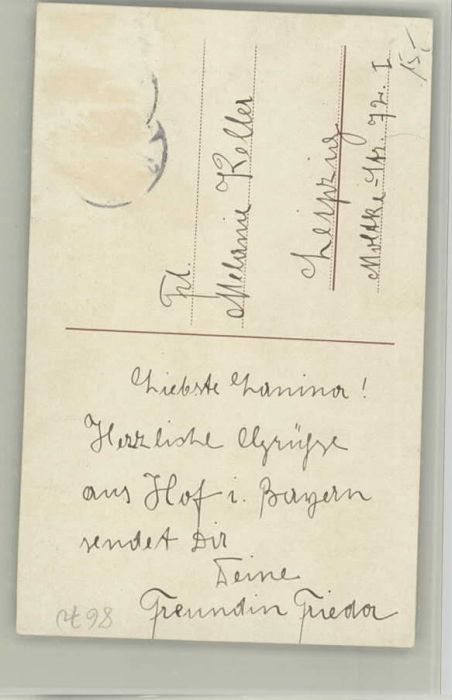 Frl.
Melanie Keller
Leipzig
Moltke-Str. 72. I
15,-
Liebste Lanina!
Herzliche Grüsse
aus Hof i. Bayern
sendet Dir
Deine
Freundin Frieda